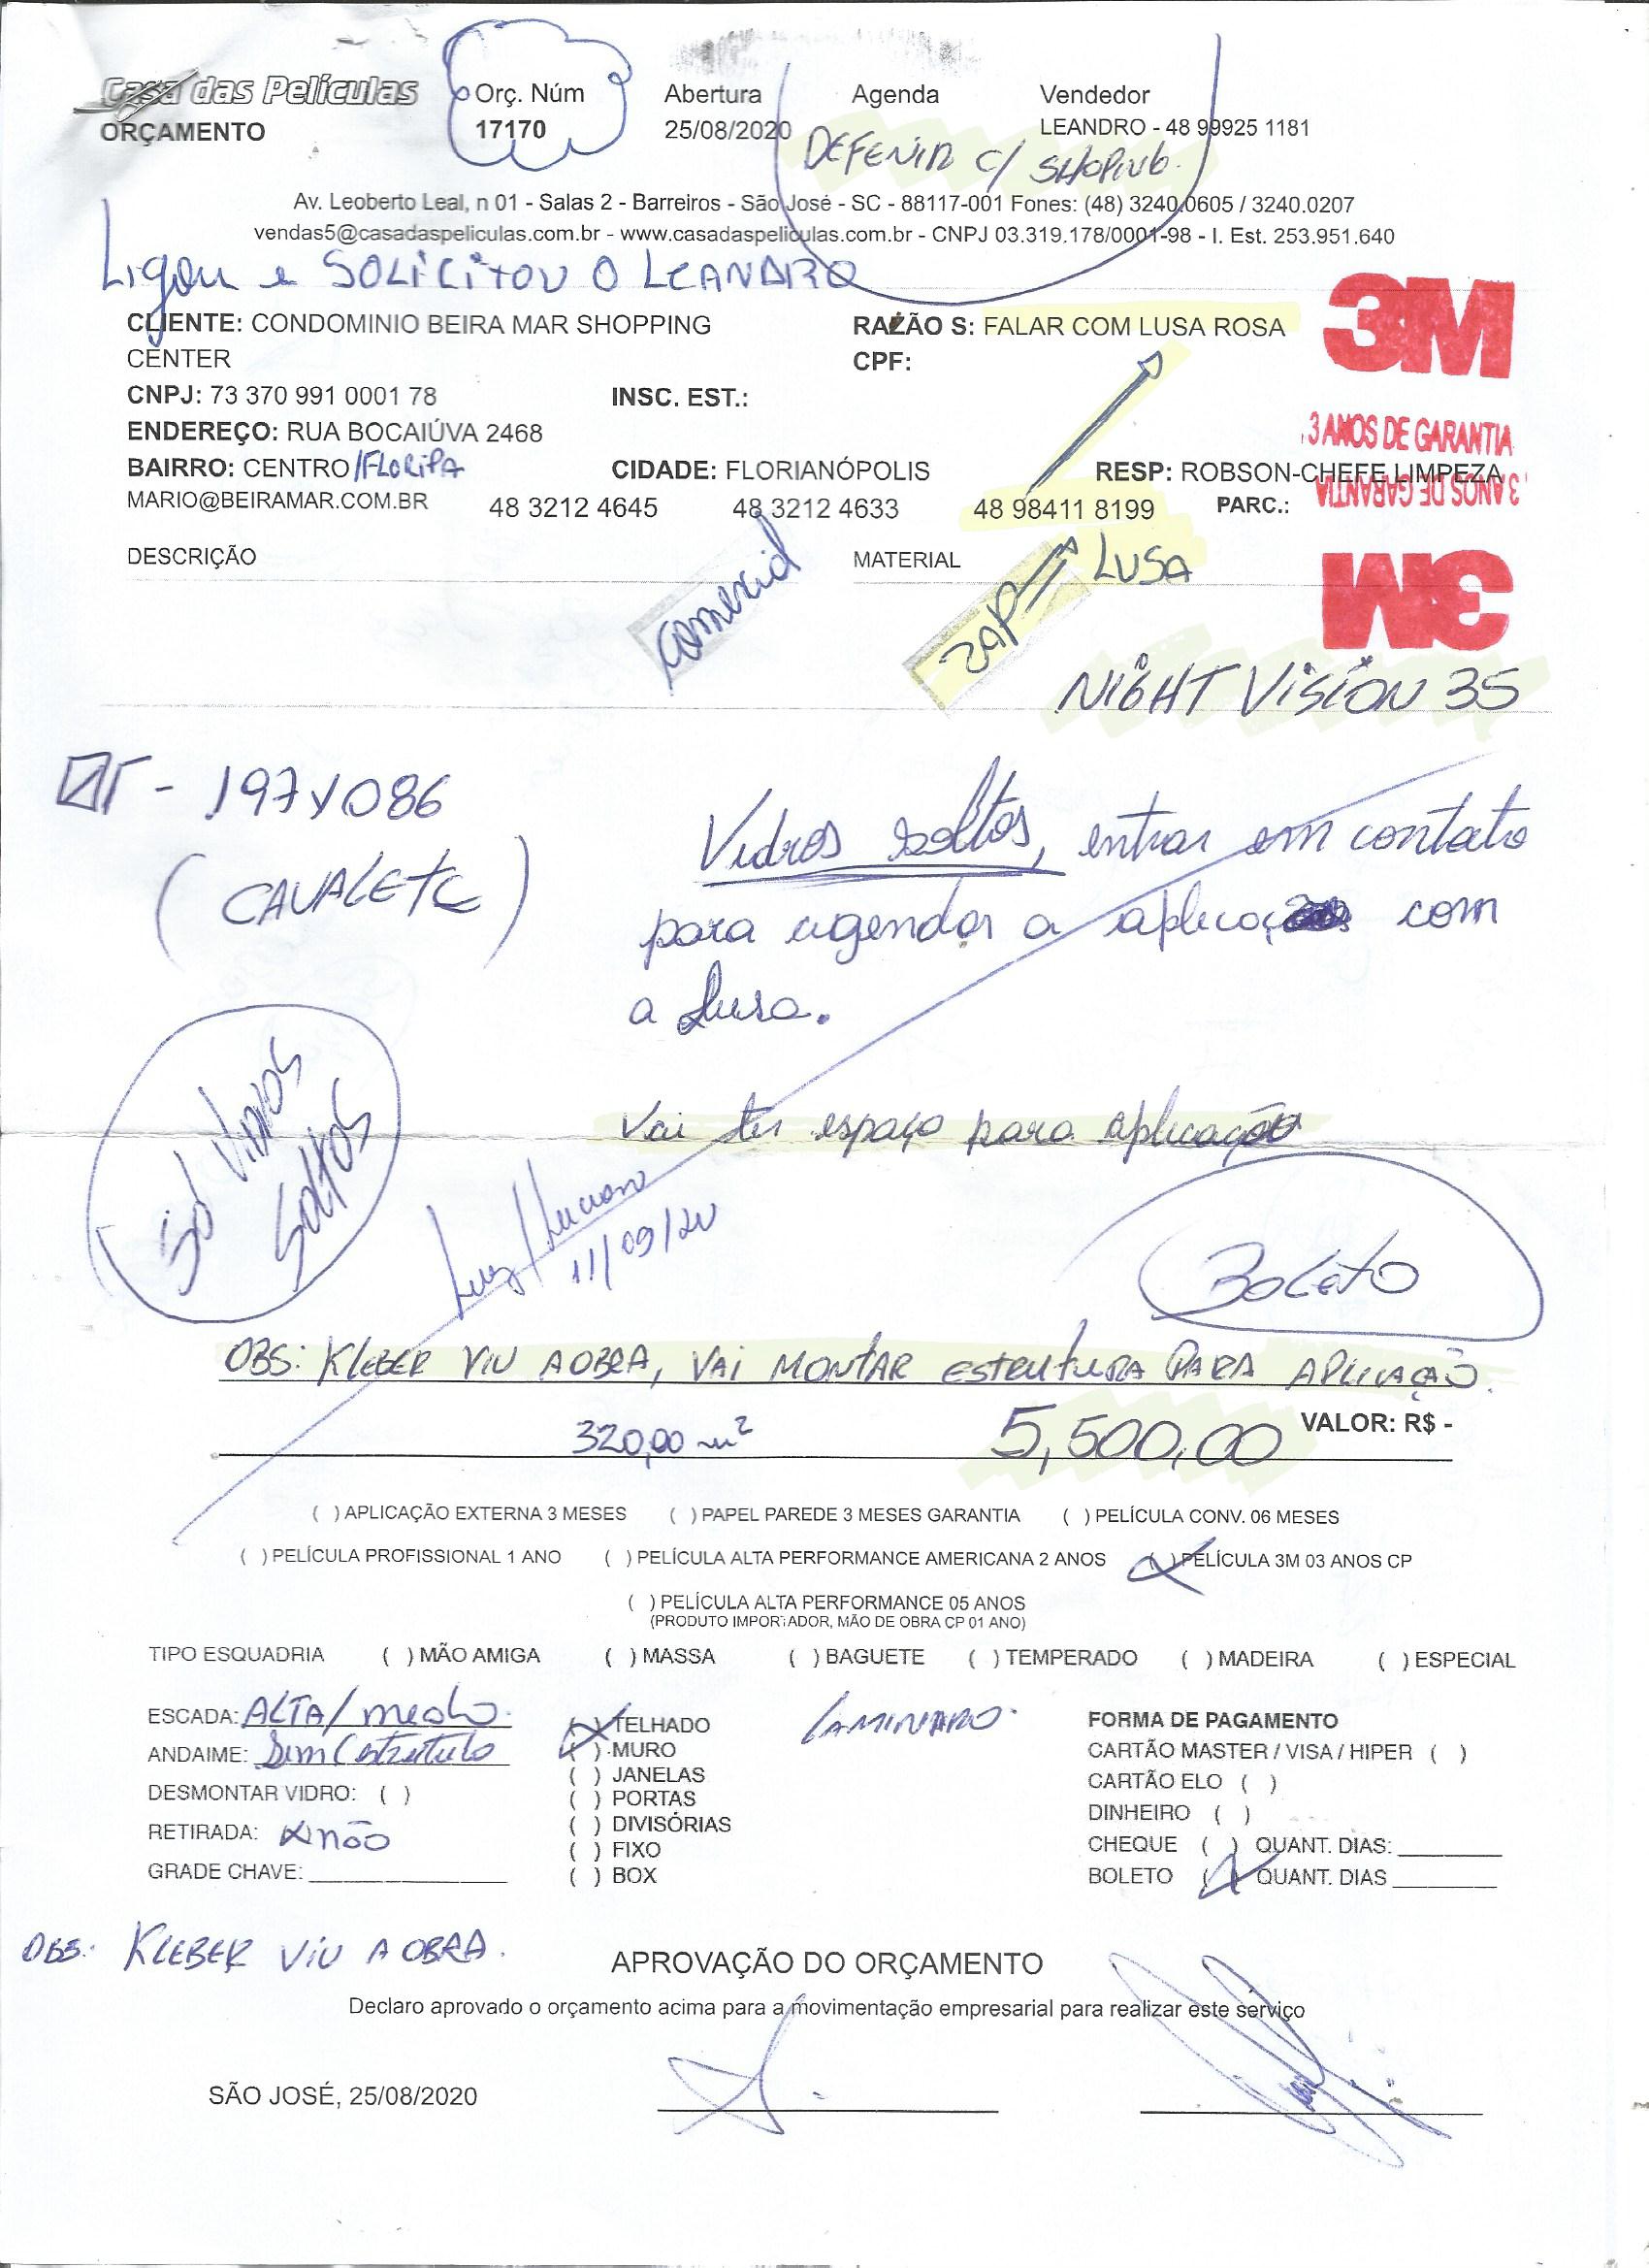 Casa das Películas
ORÇAMENTO
Orç. Núm
17170
Abertura
25/08/2020
Agenda
DEFENIR C/ SHOPING.
Vendedor
LEANDRO - 48 99925 1181
Av. Leoberto Leal, n 01 - Salas 2 - Barreiros - São José - SC - 88117-001 Fones: (48) 3240.0605 / 3240.0207
vendas5@casadaspeliculas.com.br - www.casadaspeliculas.com.br - CNPJ 03.319.178/0001-98 - I. Est. 253.951.640
Ligou e SOLICITOU O LEANDRO
CLIENTE: CONDOMINIO BEIRA MAR SHOPPING
CENTER
RAZÃO S: FALAR COM LUSA ROSA
CPF:
3M
CNPJ: 73 370 991 0001 78 INSC. EST.:
ENDEREÇO: RUA BOCAIÚVA 2468
3 ANOS DE GARANTIA
BAIRRO: CENTRO /FLORIPA CIDADE: FLORIANÓPOLIS RESP: ROBSON-CHEFE LIMPEZA
3 ANOS DE GARANTIA
MARIO@BEIRAMAR.COM.BR 48 3212 4645 48 3212 4633 48 98411 8199 PARC.:
DESCRIÇÃO MATERIAL
comercial
ZAP LUSA
3M
NIGHT VISION 35
- 197x086
(CAVALETE)
Vidros soltos, entrar em contato
para agendar a aplicação com
a Lusa.
Só VIDROS
SOLTOS
Vai ter espaço para aplicação
Luiz/Luciano
11/09/20
BOLETO
OBS: KLEBER VIU A OBRA, VAI MONTAR ESTRUTURA PARA APLICAÇÃO.
320,00 m² 5,500,00 VALOR: R$ -
( ) APLICAÇÃO EXTERNA 3 MESES ( ) PAPEL PAREDE 3 MESES GARANTIA ( ) PELÍCULA CONV. 06 MESES
( ) PELÍCULA PROFISSIONAL 1 ANO ( ) PELÍCULA ALTA PERFORMANCE AMERICANA 2 ANOS (X) PELÍCULA 3M 03 ANOS CP
( ) PELÍCULA ALTA PERFORMANCE 05 ANOS
(PRODUTO IMPORTADOR, MÃO DE OBRA CP 01 ANO)
TIPO ESQUADRIA ( ) MÃO AMIGA ( ) MASSA ( ) BAGUETE ( ) TEMPERADO ( ) MADEIRA ( ) ESPECIAL
ESCADA: ALTA/medio.
ANDAIME: Sim (estrutura
DESMONTAR VIDRO: ( )
RETIRADA: X não
GRADE CHAVE:
(X) TELHADO
( ) MURO
( ) JANELAS
( ) PORTAS
( ) DIVISÓRIAS
( ) FIXO
( ) BOX
LAMINADO.
FORMA DE PAGAMENTO
CARTÃO MASTER / VISA / HIPER ( )
CARTÃO ELO ( )
DINHEIRO ( )
CHEQUE ( ) QUANT. DIAS:
BOLETO (X) QUANT. DIAS
OBS: KLEBER VIU A OBRA.
APROVAÇÃO DO ORÇAMENTO
Declaro aprovado o orçamento acima para a movimentação empresarial para realizar este serviço
SÃO JOSÉ, 25/08/2020